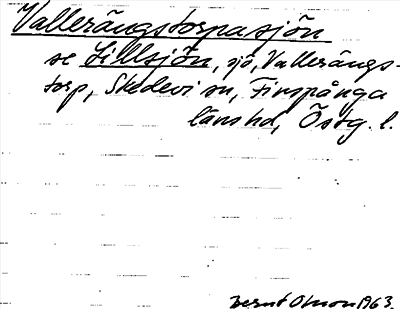 Vallerängstorpasjön
se Lillsjön, sjö, Vallerängs-
torp, Skedevi sn, Finspånga
läns hd, Östg. l.
Bernt Olsson 1963.